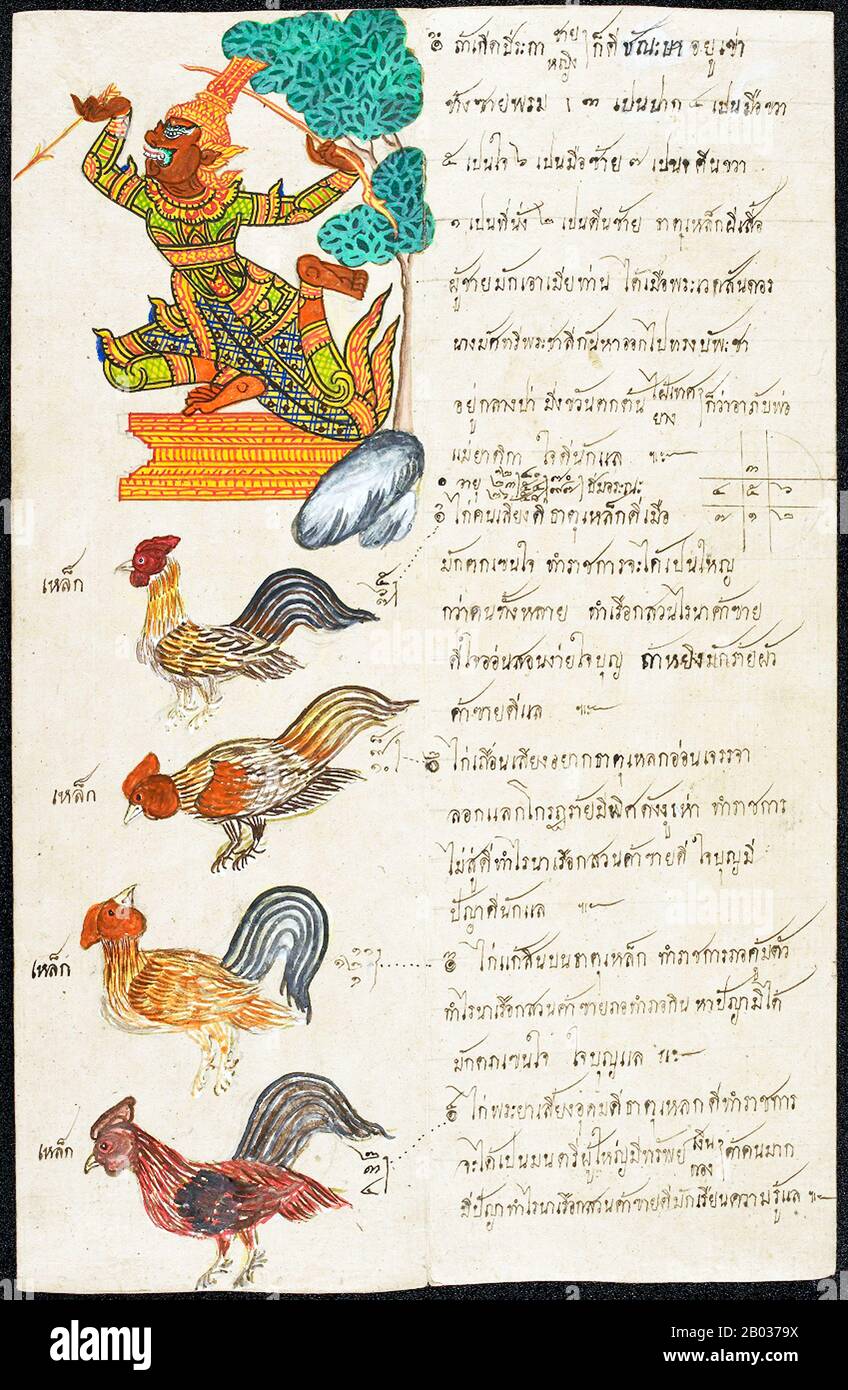 ๏ ถ้าเกิดปีระกา ชาย หญิง ก็ดี ชัณะษา อยู่เข่า
ข้างซายพรม ๑ ๓ เปนปาก ๔ เปนมือขวา
๕ เปนใจ ๖ เปนมือซ้าย ๗ เปน ตีนขวา
๑ เปนที่นั่ง ๒ เปนตีนซ้าย ธาตุเหล็กผีเสื้อ
ผู้ชายมักเอาเมียท่าน ได้เมื่อพระเวศสันดอร
นางมัศทรีพระชาลีกันหาออกไปทรงบัพะชา
อยู่กลางป่า มิ่งขวันตกต้น ไผ่เทศ ยาง ก็ว่าอาภับพ่อ
แม่ญาติกา ใจดีนักแล ๚ะ
อายุ
๓
๔ ๕ ๖
๗ ๑ ๒
๏ ไก่คนเลี้ยงดี ธาตุเหล็กดีเมื่อ
มักตกเขนใจ ทำราชการจะได้เปนใหญ่
กว่าคนทังหลาย ทำเรือกสวนไร่นาค้าขาย
ดีใจอ่อนสอนง่ายใจบุญ ถ้าหยิงมักร้ายผัว
ค้าขายดีแล ๚ะ
๏ ไก่เถื่อนเสียงอยากธาตุเหลกอ่อนเจรจา
ลอกแลกโกรฏร้ายมีพิศดังงูเห่า ทำราชการ
ไม่สู้ดีทำไร่นาเรือกสวนค้าขายดี ใจบุญมี
ปัญาดีนักแล ๚ะ
๏ ไก่แก้ บนธาตุเหล็ก ทำราชการภอคุ้มตัว
ทำไร่นาเรือกสวนค้าขายภอทำภอกิน หาปัญามิได้
มักตกเขนใจ ใจบุญแล ๚ะ
๏ ไก่พระยาเลี้ยงอุดมดีธาตุเหลกดีทำราชการ
จะได้เปนมนตรีผู้ใหญ่มีทรัพย์ เงิน ทอง ค่าคนมาก
มีปัญาทำไร่นาเรือกสวนค้าขายดีมักเรียนความรู้แล ๚ะ
เหล็ก
เหล็ก
เหล็ก
เหล็ก
๒
๓
๔
alamy
Image ID: B0379X
www.alamy.com